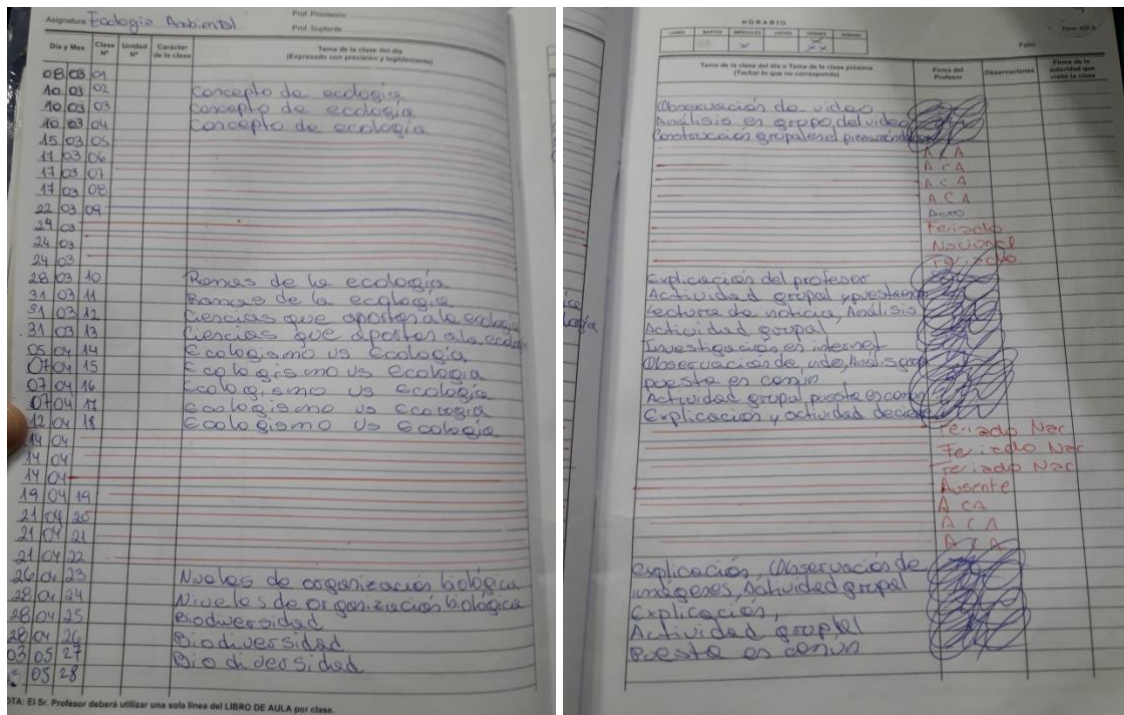 Asignatura Ecología Ambiental
Prof. Provisorio
Prof. Suplente
Día y Mes Clase Nº Unidad Nº Carácter de la clase Tema de la clase del día (Expresado con precisión y legiblemente)
08 03 01
10 03 02 Concepto de ecología
10 03 03 Concepto de ecología
10 03 04 Concepto de ecología
15 03 05
17 03 06
17 03 07
17 03 08
22 03 09
24 03
24 03
24 03
28 03 10 Ramas de la ecología
31 03 11 Ramas de la ecología
31 03 12 Ciencias que aportan a la ecología
31 03 13 Ciencias que aportan a la ecolo
05 04 14 Ecologismo vs Ecología
07 04 15 Ecologismo vs Ecología
07 04 16 Ecologismo vs Ecología
07 04 17 Ecologismo vs Ecología
12 04 18 Ecologismo vs Ecología
14 04
14 04
14 04
19 04 19
21 04 20
21 04 21
21 04 22
26 04 23 Niveles de organización biológica
28 04 24 Niveles de organización biológica
28 04 25 Biodiversidad
28 04 26 Biodiversidad
03 05 27 Biodiversidad
05 28
OTA: El Sr. Profesor deberá utilizar una sola línea del LIBRO DE AULA por clase.
HORARIO
LUNES MARTES MIERCOLES JUEVES VIERNES SABADO
Folio
Tema de la clase del día o Tema de la clase próxima (Tachar lo que no corresponda) Firma del Profesor Observaciones Firma de la autoridad que visitó la clase
Observación de video
Análisis en grupo del video
Construcción grupal
A C A
A C A
A C A
A C A
Acto
Feriado
Nacional
Feriado
Explicación del profesor
Actividad grupal y puesta en
Lectura de noticia, Análisis
Actividad grupal
Investigación en internet
Observación de vide, Análisis grup
puesta en común
Actividad grupal, puesta en com
Explicación y actividad de cie
Feriado Nac
Feriado Nac
Feriado Nac
Ausente
A C A
A C A
A C A
explicación, Observación de
imágenes, Actividad grupal
Explicación,
Actividad grupal
Puesta en común